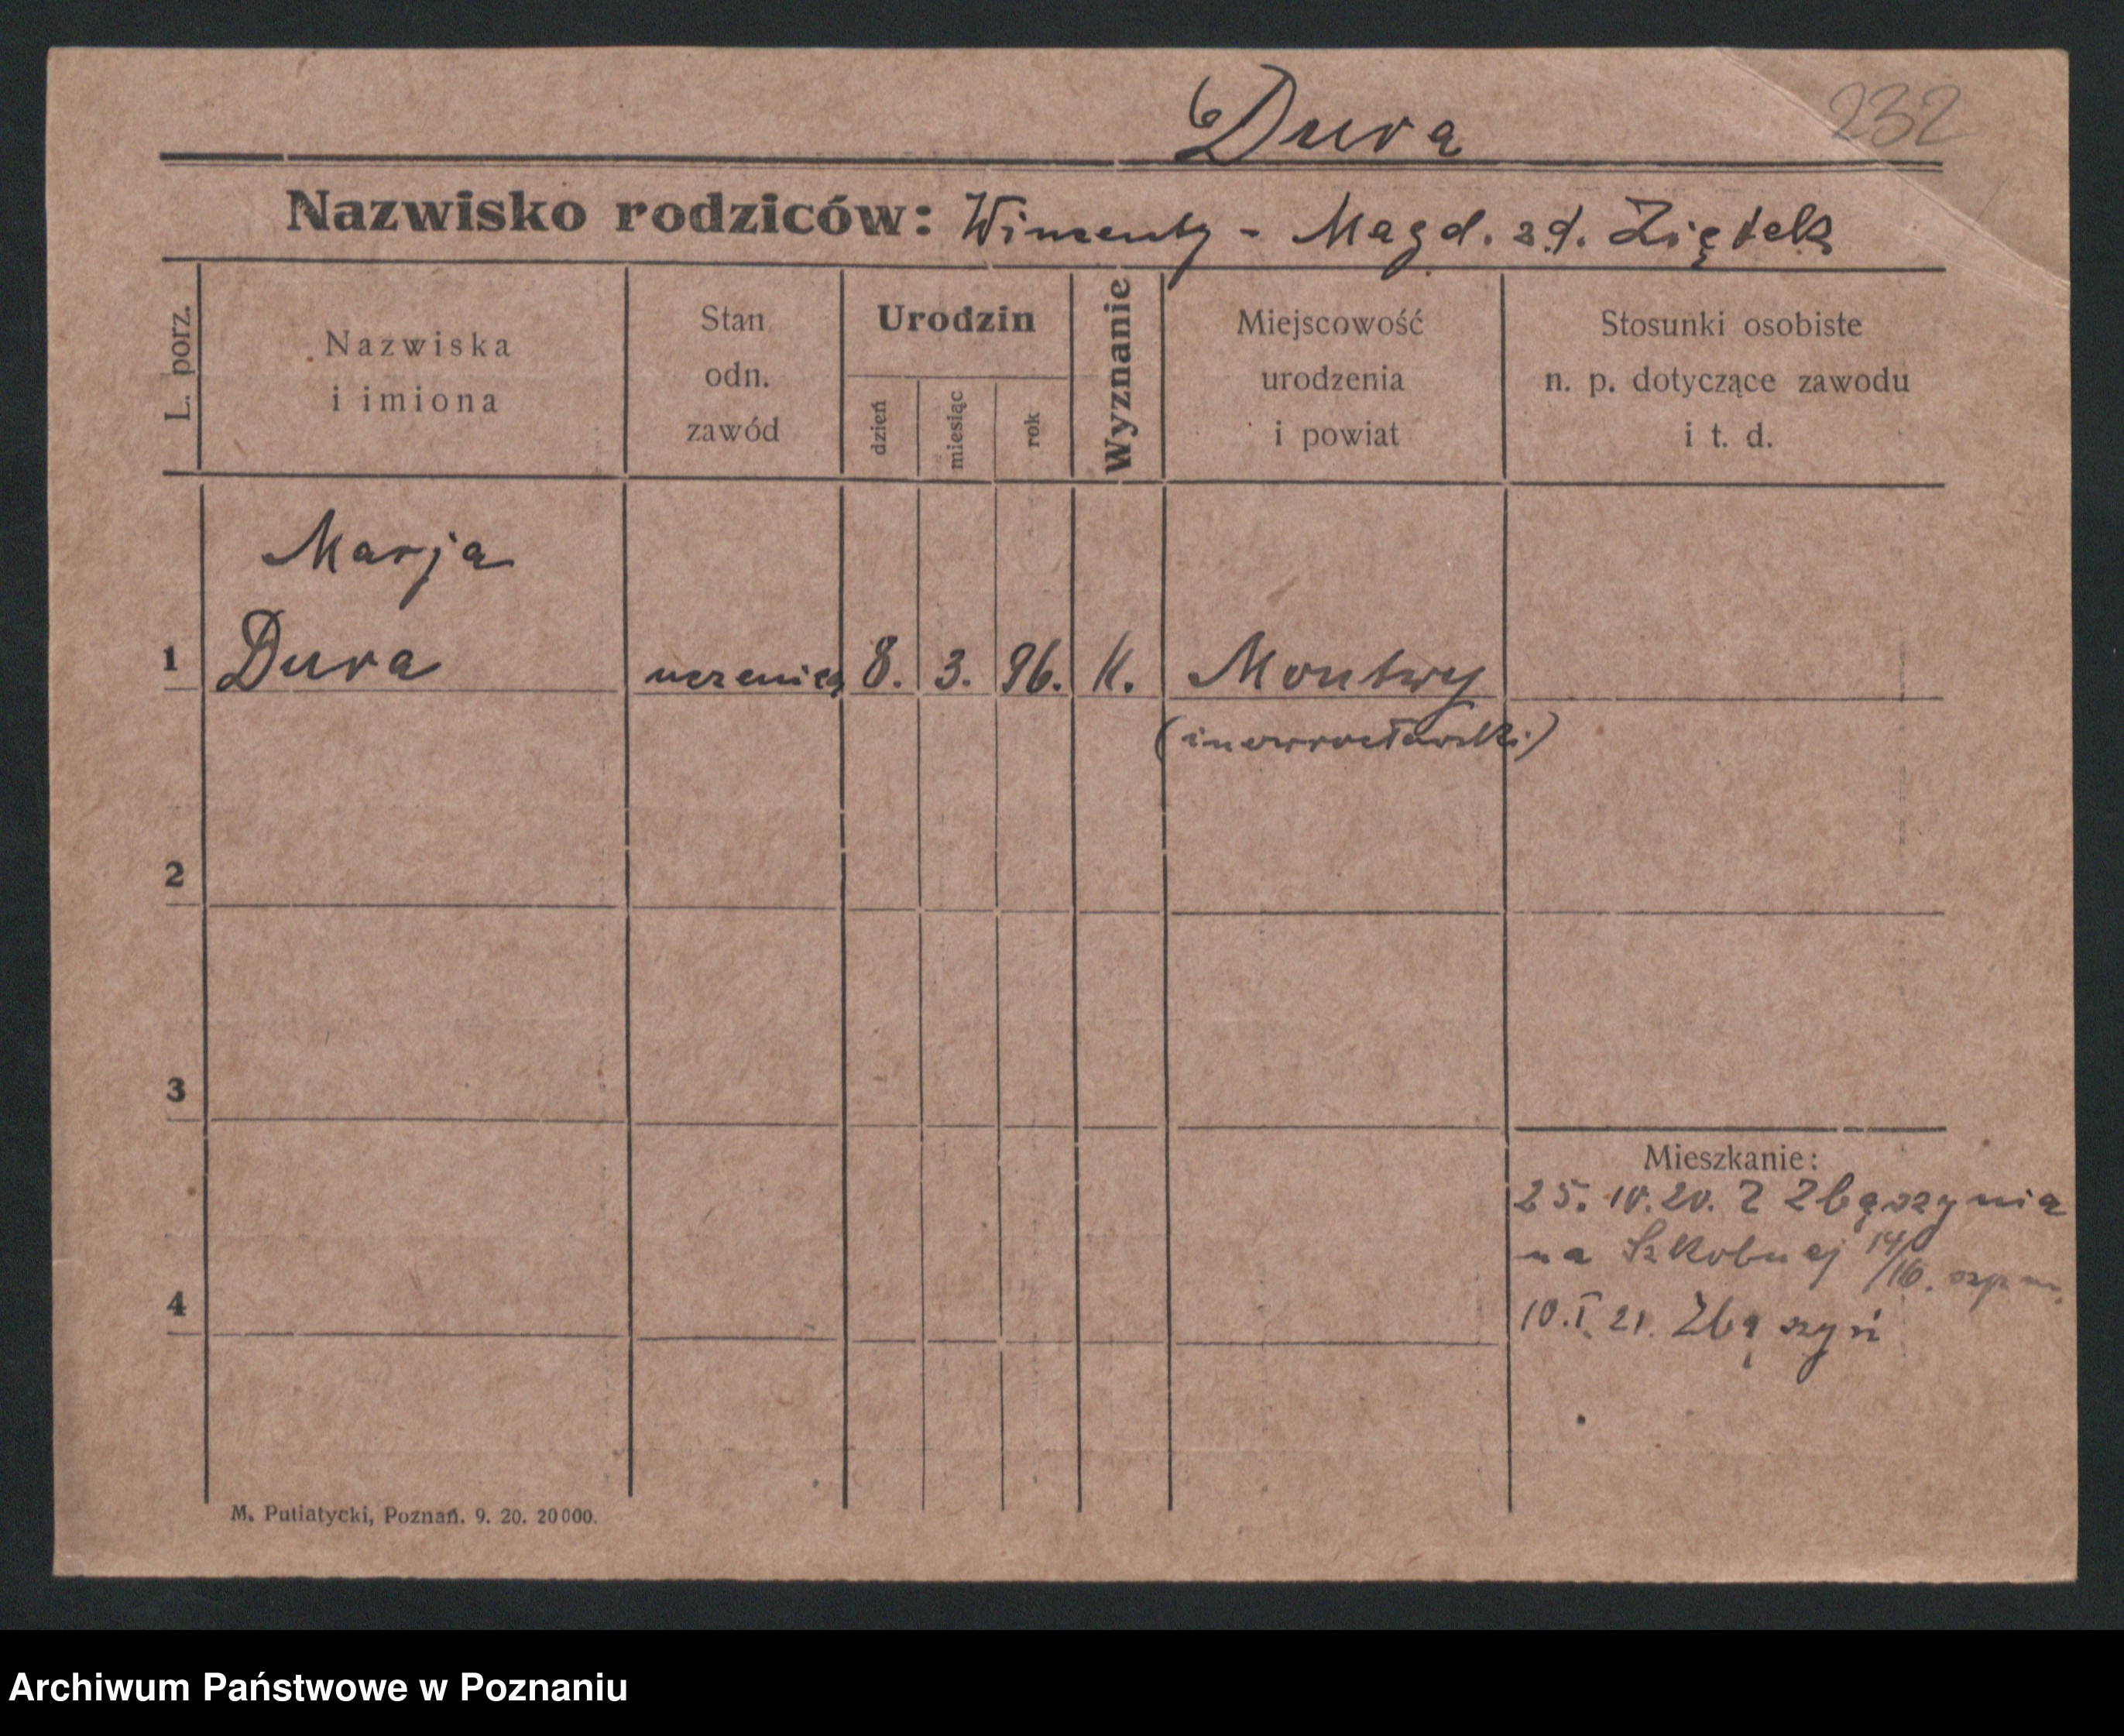 Dura
232
Nazwisko rodziców: Wincenty - Magd. zd. Ziętek
L. porz.
Nazwiska
i imiona
Stan
odn.
zawód
Urodzin
dzień
miesiąc
rok
Wyznanie
Miejscowość
urodzenia
i powiat
Stosunki osobiste
n. p. dotyczące zawodu
i t. d.
Marja
1 Dura uczenica 8. 3. 96. K. Montwy
(inowrocławski)
2
3
Mieszkanie:
25. 10. 20. Z Zbąszynia
na Szkolnej 14/16.
4
10. I. 21. Zbąszyń
M. Putiatycki, Poznań. 9. 20. 20000.
Archiwum Państwowe w Poznaniu